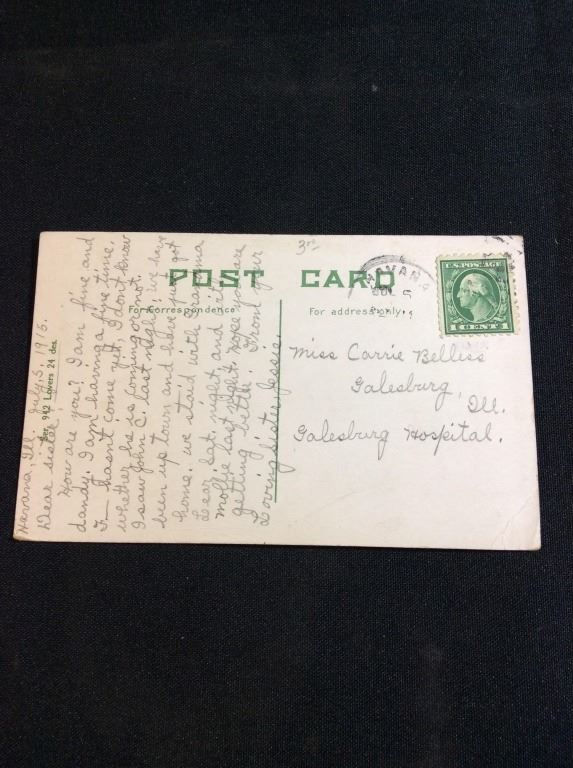 POST CARD
For Correspondence
For address only
3rd
HAVANA
U.S. POSTAGE
1 CENT 1
Miss Carrie Belliss
Galesburg,
Ill.
Galesburg Hospital.
942 Lovers 24 des.
Havana, Ill. July, 5, 1915.
Dear sister:
How are you? I am fine and
dandy. I am having a fine time.
F— hasn't come yet, I don't know
whether he is coming or not.
I saw John C. last night. we have
been up town and have just got
home. we staid with Grandma
Lear Sat. night and with
Mollie last night. Hope you are
getting better. From your
Loving sister Jessie.